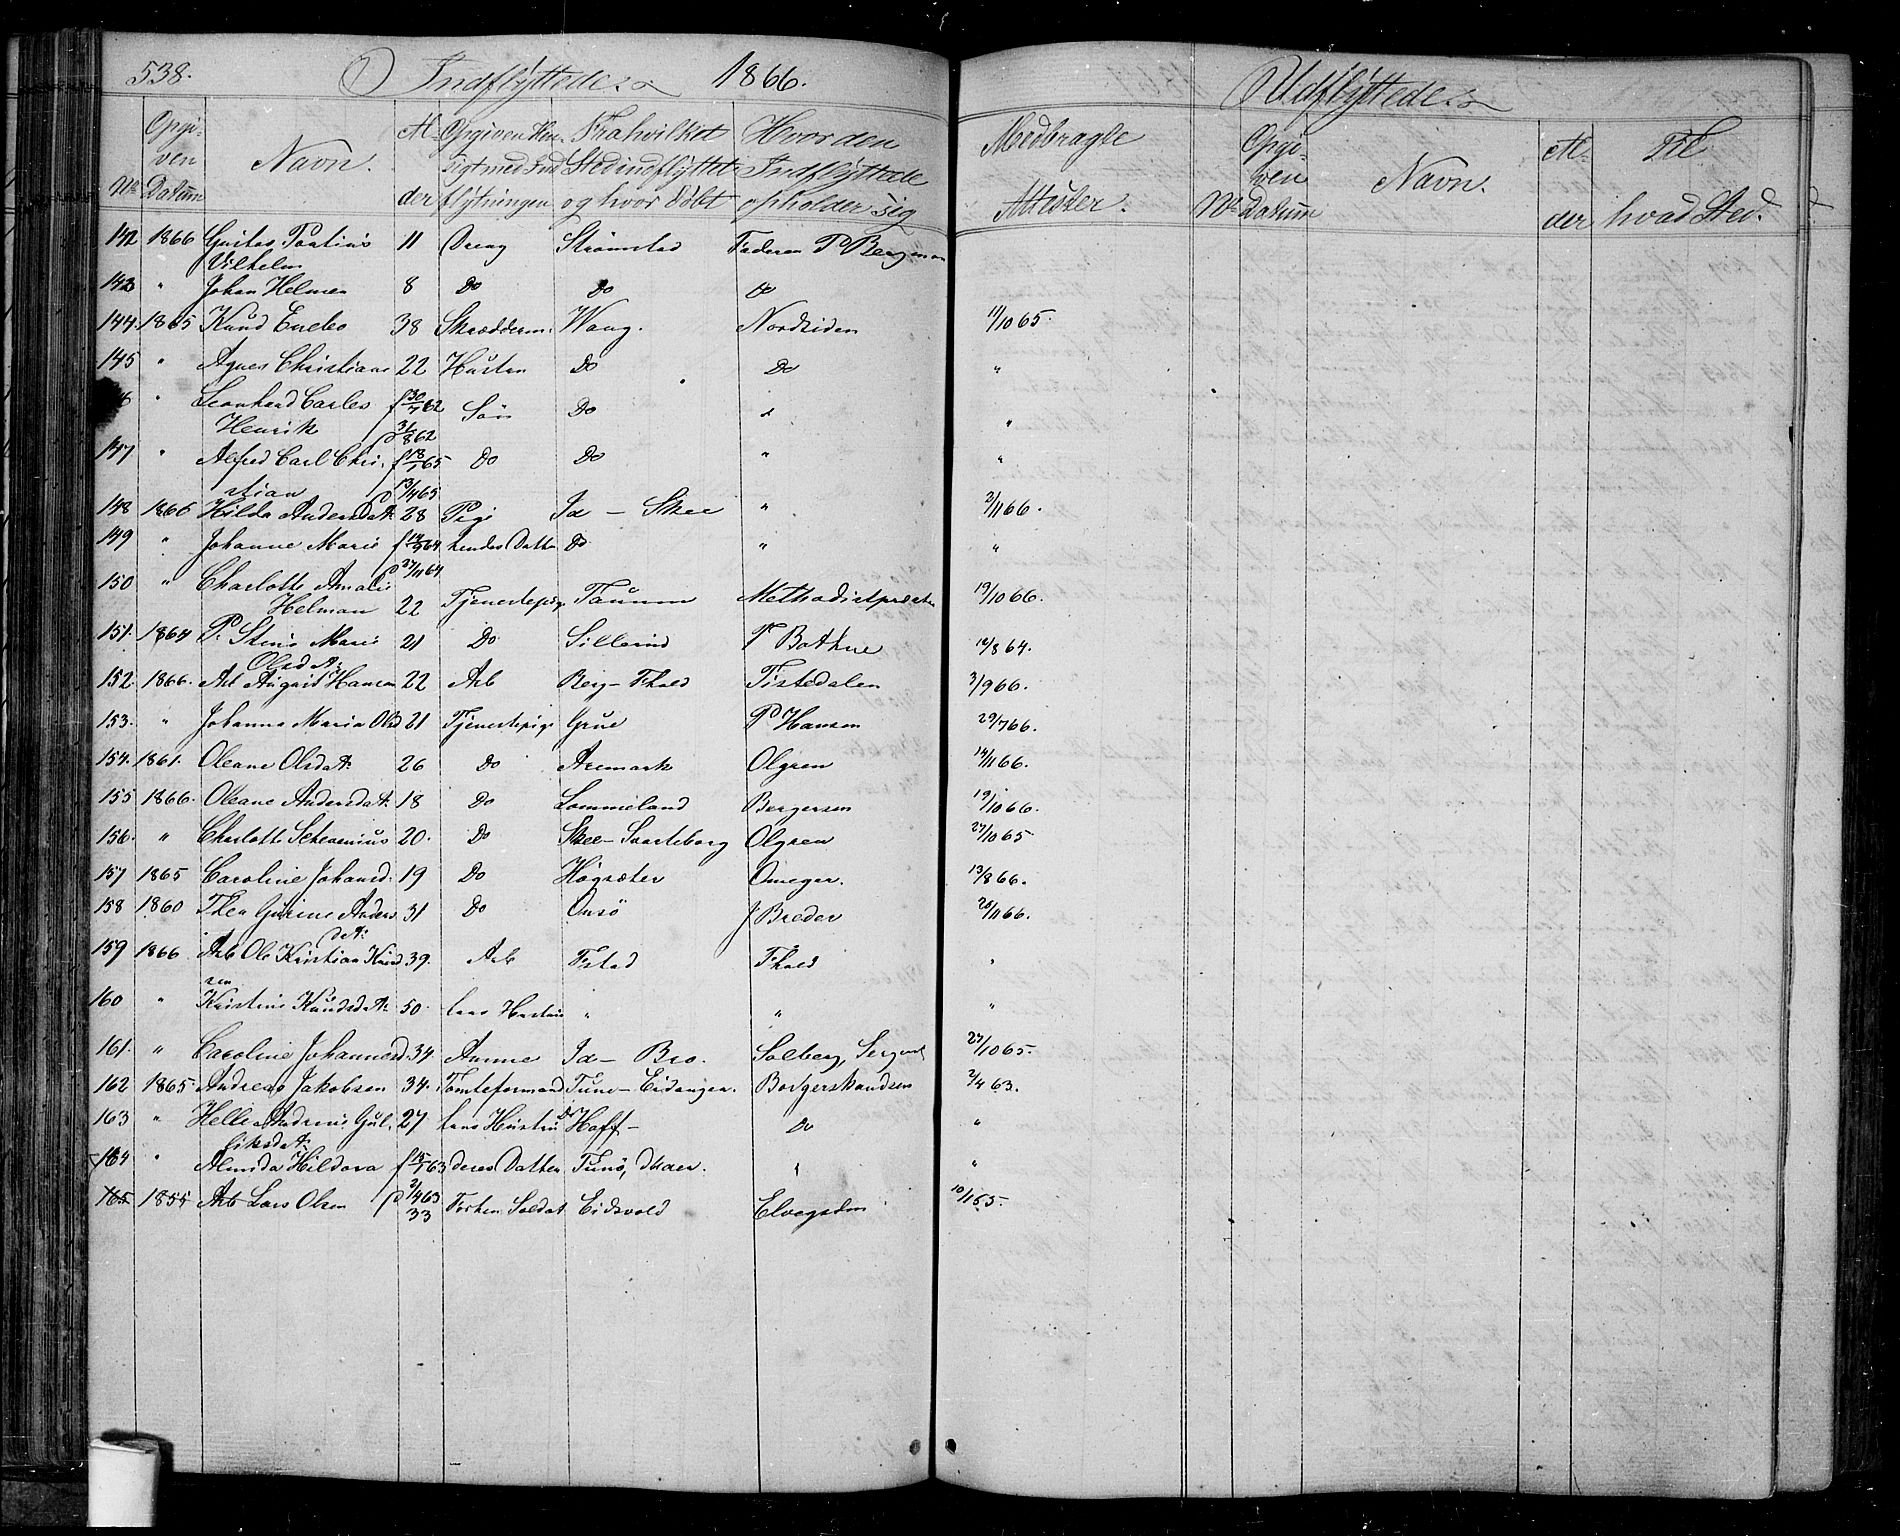 538. Indflÿttede. 1866. Udflÿttede.
No Opgiven Datum Navn. Alder Opgiven Hensigt med Indflytningen Fra hvilket Sted indflÿttet og hvor födt Hvor den Indflÿttede opholder sig Medbragte Attester. No Opgiven Datum Navn. Alder Til hvad Sted.
142 1866 Pontius 11 Dreng Strömstad Faderen P Bergman
Vilhelm
143 " Johan Helmer 8 Do Do Do
144. 1865 Knud Enebo 38 Skrædderm. Wang. Nordsiden 11/10 65.
145 " Agnes Christiane 22 Hustru Do Do "
" Leonhard Carles f 30/7 62 Sön Do "
Henrik 31/8 62 "
147 " Alfred Carl Chri- f 18/1 65 Do Do " "
stian 13/4 65
148 1866 Hilda Andersdatr 28 Pige Id – Skee " 2/11 66.
149 " Johanne Marie f 64 hendes Datter Do " "
27/11 64
150 " Charlotte Amalie
Helman 22 Tjenestepige Tanum Methodistpræsten 19/10 66.
151. 1864 P. Stine Marie 21 Do Sillerud F Bothne 12/8 64.
Olsdatr
152. 1866. Arb August Hansen 22 Arb Berg – Fhald Tistedalen 3/9 66.
153. " Johanne Maria Olsd 21 Tjenestepige Grue P Hansen 29/7 66.
154. 1861. Oleane Olsdatr 26 Do Aremark Olgren 14/11 66.
155 1866. Oleane Andersdatr 18 Do Lommeland Borgersen 19/10 66.
156. " Charlotte Schevenius 20. Do Skee – Svarteborg Olgren 27/10 65
157 1865 Caroline Johansd. 19 Do Högsæter Omeger. 13/8 66.
158 1860 Thea Gurine Anders 31 Do Onsö J Breder 26/11 66.
datr
159 1866 Arb Ole Kristian Knud 39. Arb Fstad Fhald "
sen
160 " Kristine Knudsdatr 50. hans Hustru " " "
161. " Caroline Johannesd. 34. Amme Id – Bro. Solberg, Sergent 27/10 65.
162 1865 Andreas Jakobsen 34. Tomteformand Tune – Eidanger. Borgerskandsen 2/4 63.
163 " Helle Andrine Gul- 27 hans Hustru Do Hoff – Do "
liksdatr
164 " Almida Hildora f 15/1 63 deres Datter Tune, " "
2/4 63
165 1855 Arb Lars Olsen 33 Forhen Soldat Eidsvold Elvegaden 10/1 55.